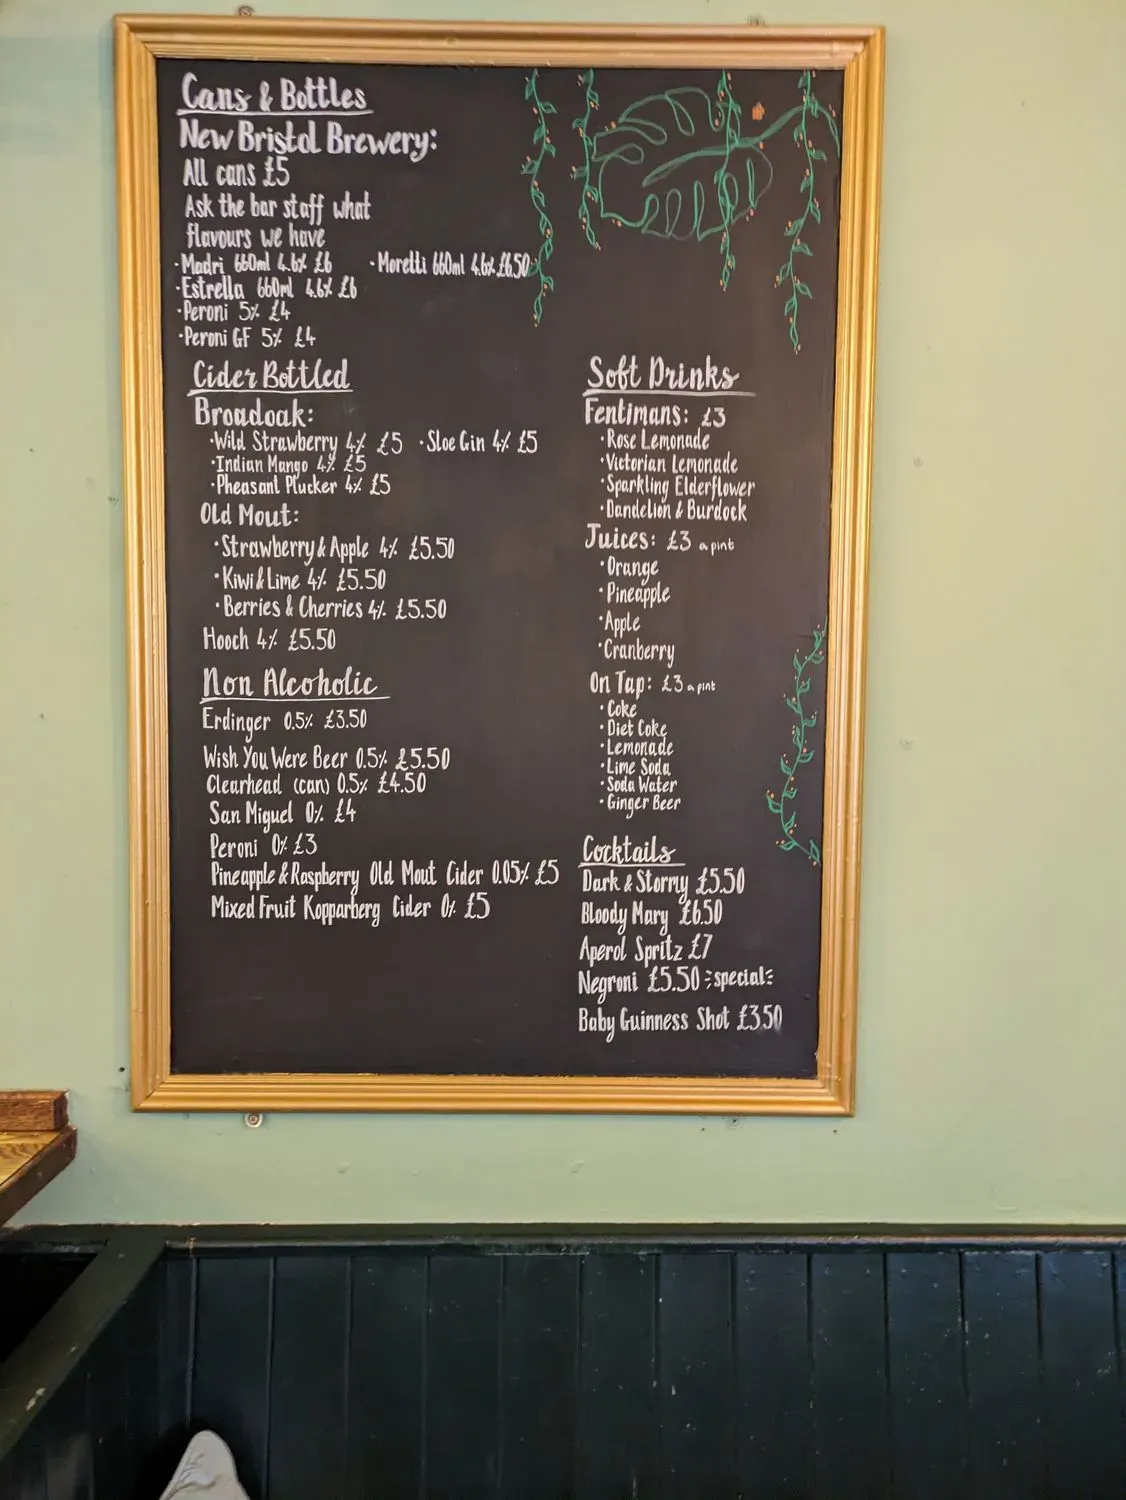 Cans & Bottles
New Bristol Brewery:
All cans £5
Ask the bar staff what
flavours we have
·Madri 660ml 4.6% £6 ·Moretti 660ml 4.6% £6.50
·Estrella 660ml 4.6% £6
·Peroni 5% £4
·Peroni GF 5% £4
Cider Bottled
Broadoak:
·Wild Strawberry 4% £5 ·Sloe Gin 4% £5
·Indian Mango 4% £5
·Pheasant Plucker 4% £5
Old Mout:
·Strawberry & Apple 4% £5.50
·Kiwi & Lime 4% £5.50
·Berries & Cherries 4% £5.50
Hooch 4% £5.50
Non Alcoholic
Erdinger 0.5% £3.50
Wish You Were Beer 0.5% £5.50
Clearhead (can) 0.5% £4.50
San Miguel 0% £4
Peroni 0% £3
Pineapple & Raspberry Old Mout Cider 0.05% £5
Mixed Fruit Kopparberg Cider 0% £5
Soft Drinks
Fentimans: £3
·Rose Lemonade
·Victorian Lemonade
·Sparkling Elderflower
·Dandelion & Burdock
Juices: £3 a pint
·Orange
·Pineapple
·Apple
·Cranberry
On Tap: £3 a pint
·Coke
·Diet Coke
·Lemonade
·Lime Soda
·Soda Water
·Ginger Beer
Cocktails
Dark & Stormy £5.50
Bloody Mary £6.50
Aperol Spritz £7
Negroni £5.50 special
Baby Guinness Shot £3.50